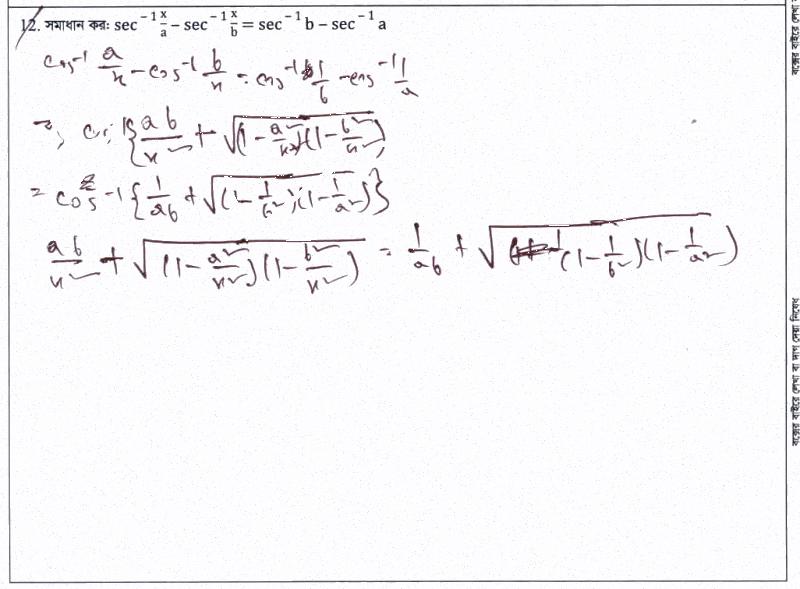 12. সমাধান কর: sec⁻¹ x/a − sec⁻¹ x/b = sec⁻¹ b − sec⁻¹ a
cos⁻¹ a/x − cos⁻¹ b/x = cos⁻¹ 1/b − cos⁻¹ 1/a
⇒, cos⁻¹ { ab/x² + √(1 − a²/x²)(1 − b²/x²) }
= cos⁻¹ { 1/ab + √(1 − 1/b²)(1 − 1/a²) }
ab/x² + √(1 − a²/x²)(1 − b²/x²) = 1/ab + √(1 − 1/b²)(1 − 1/a²)
বক্সের বাইরে লেখা বা দাগ দেয়া নিষেধ